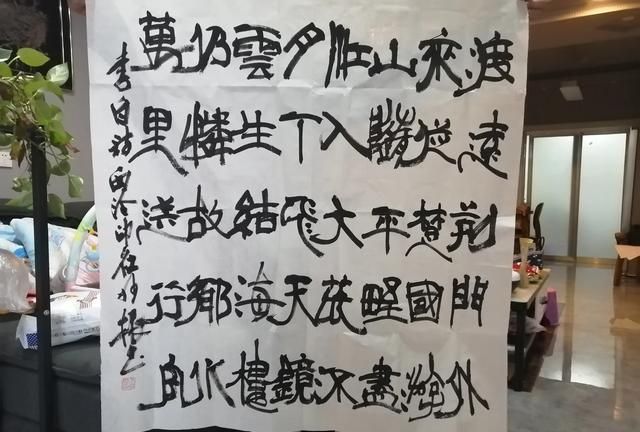 渡遠荆門外
來從楚國游
山隨平野盡
江入大荒流
月下飛天鏡
雲生結海樓
仍憐故鄉水
萬里送行舟
李白詩 西泠印社